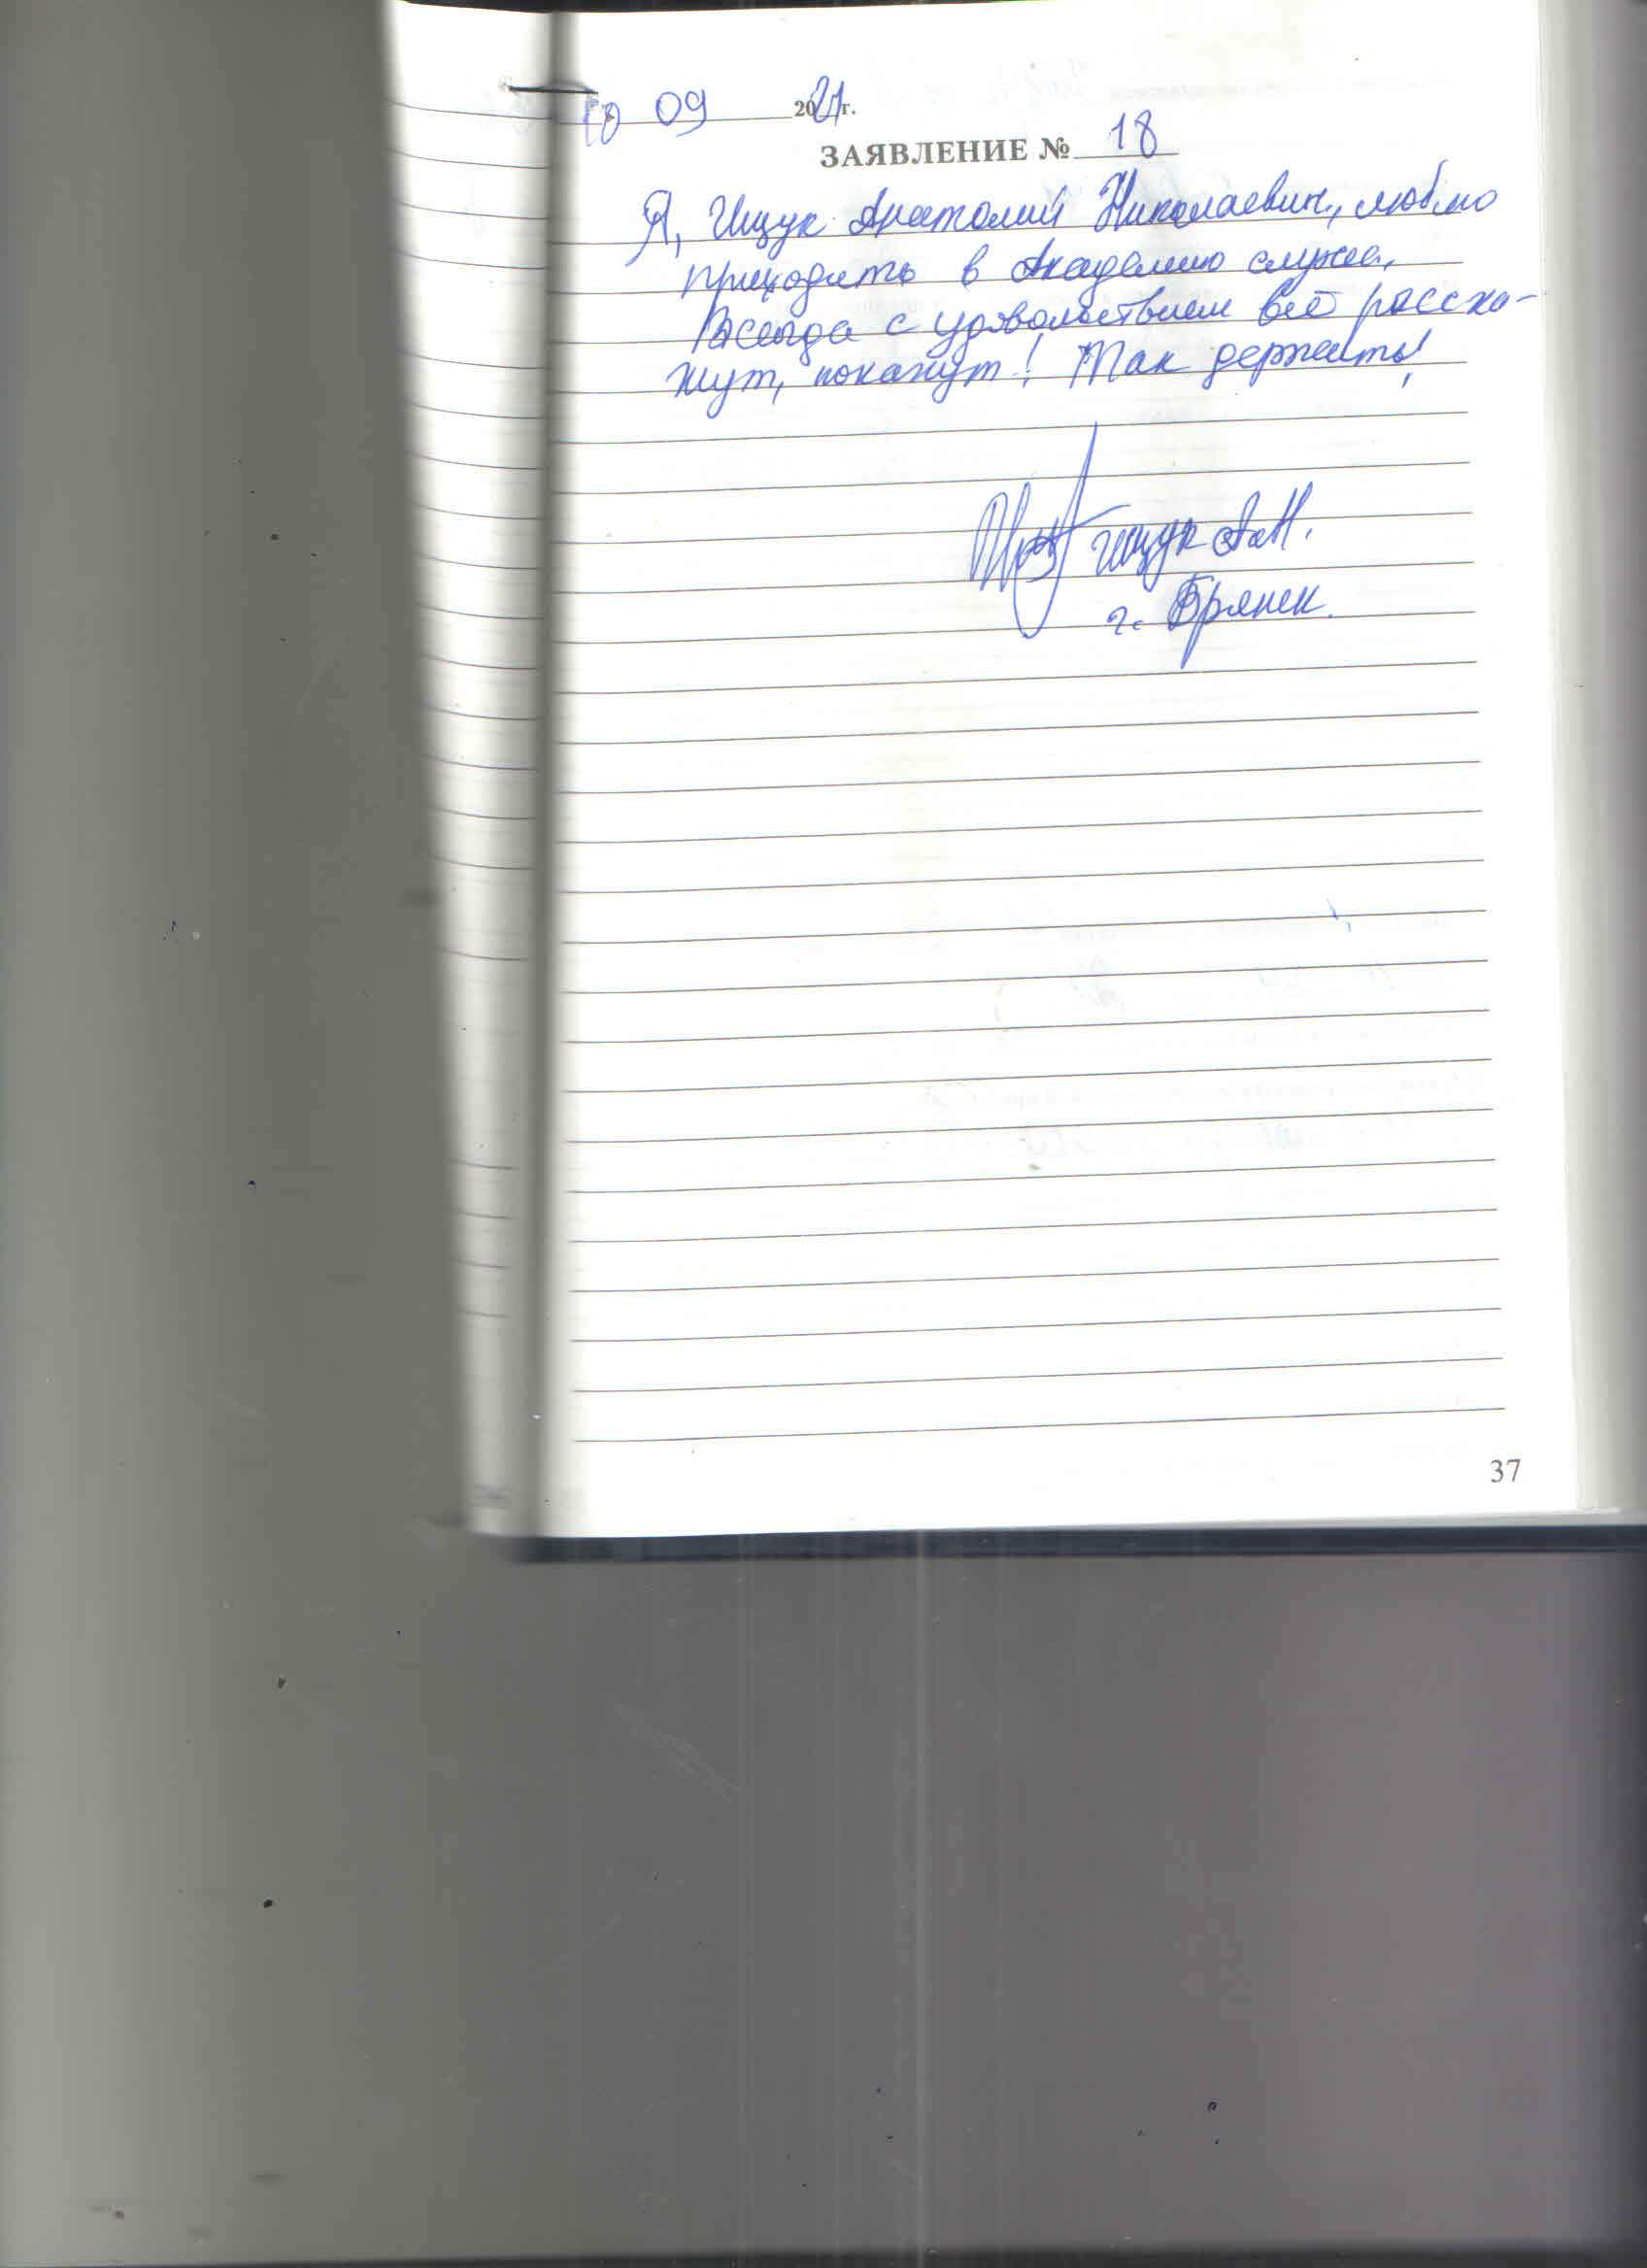 10 09 2021 г.
ЗАЯВЛЕНИЕ № 18
Я, Ищук Анатолий Николаевич, люблю
приходить в Академию слуха.
Всегда с удовольствием всё расска-
жут, покажут! Так держать!
Ищук А.Н.
г. Брянск.
37